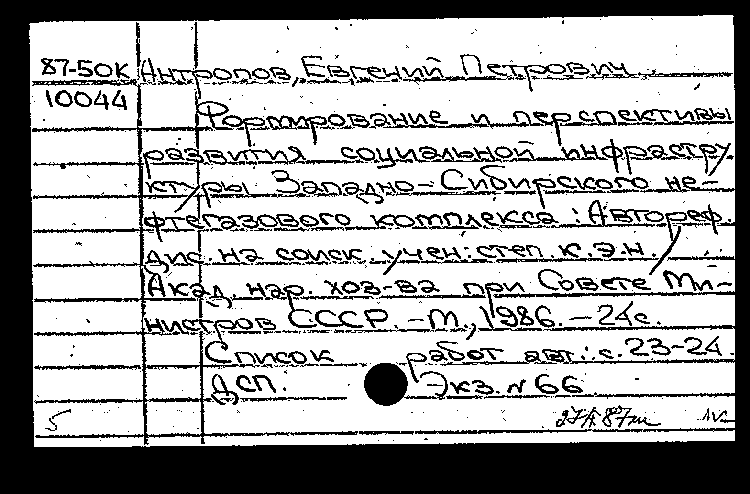 87-50К Антропов, Евгений Петрович
10044 Формирование и перспективы
развития социальной инфрастру-
ктуры Западно-Сибирского не-
фтегазового комплекса: Автореф.
дис. на соиск. учен. степ. к.э.н. /
Акад. нар. хоз-ва при Совете Ми-
нистров СССР. -М., 1986. - 24с.
Список работ авт.: с. 23-24.
ДСП. Экз. N 66
5